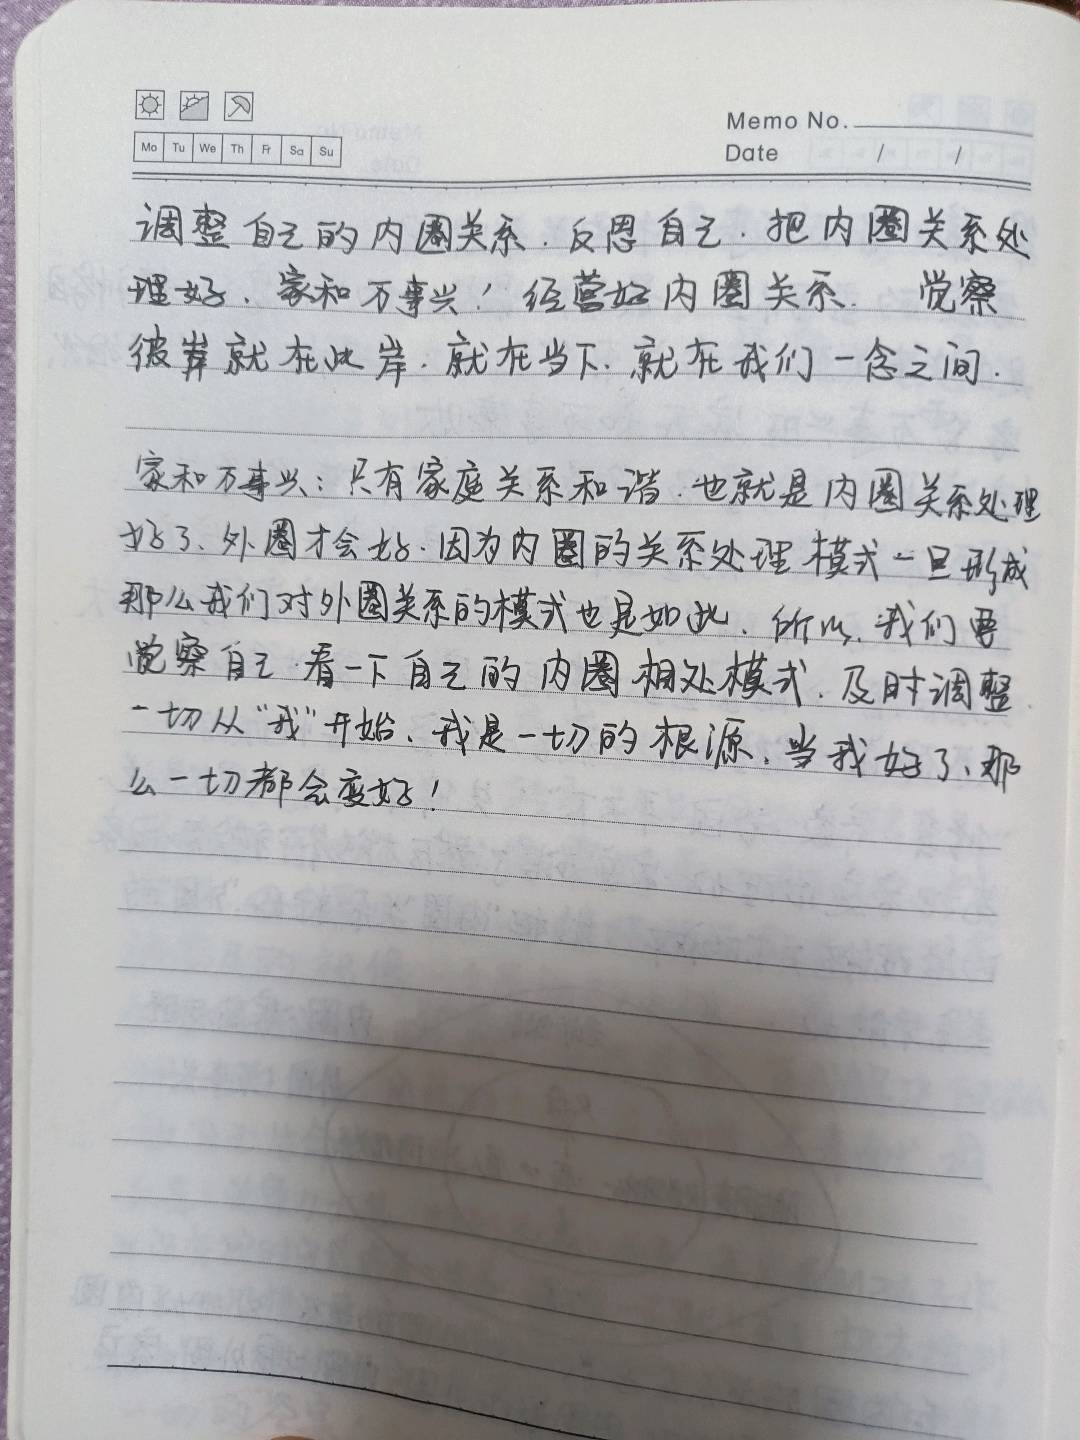 Memo No.
Mo Tu We Th Fr Sa Su
Date / /
调整自己的内圈关系.反思自己.把内圈关系处
理好、家和万事兴！经营好内圈关系. 觉察
彼岸就在此岸.就在当下.就在我们一念之间.
家和万事兴：只有家庭关系和谐.也就是内圈关系处理
好了、外圈才会好.因为内圈的关系处理模式一旦形成
那么我们对外圈关系的模式也是如此、所以.我们要
觉察自己.看一下自己的内圈相处模式.及时调整.
一切从“我”开始、我是一切的根源、当我好了、那
么一切都会变好！